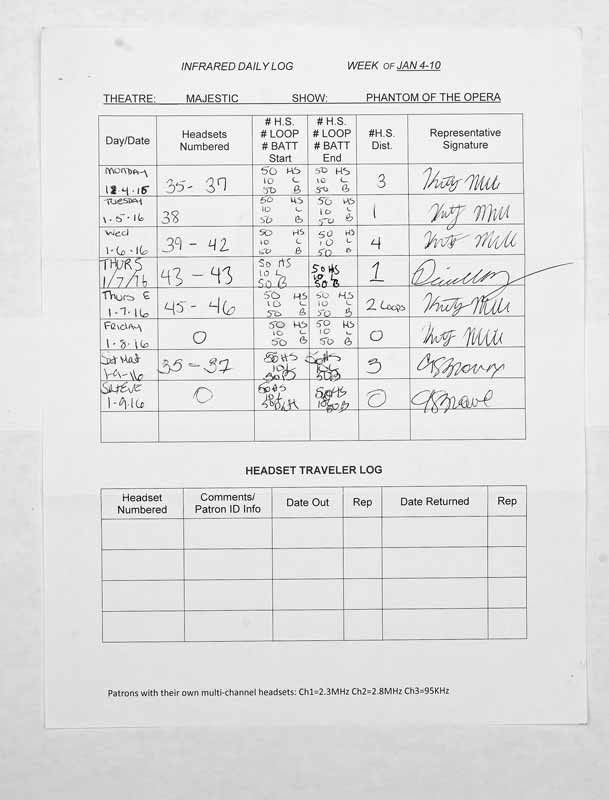 INFRARED DAILY LOG WEEK OF JAN 4-10
THEATRE: MAJESTIC SHOW: PHANTOM OF THE OPERA
Day/Date
Headsets
Numbered
# H.S.
# LOOP
# BATT
Start
# H.S.
# LOOP
# BATT
End
#H.S.
Dist.
Representative
Signature
MONDAY
4.16
35 - 37
50 HS
10 L
50 B
50 HS
10 L
50 B
3
TUESDAY
1.5.16
38
50 HS
10 L
50 B
50 HS
10 L
50 B
1
Wed
1.6.16
39 - 42
50 HS
10 L
50 B
50 HS
10 L
50 B
4
THURS
1/7/16
43 - 43
50 HS
10 L
50 B
50 HS
10 L
50 B
1
Thurs E
1.7.16
45 - 46
50 HS
10 L
50 B
50 HS
10 L
50 B
2 Loops
FRIDAY
1.8.16
0
50 HS
10 L
50 B
50 HS
10 L
50 B
0
Sat Mat
1-9-16
35 - 37
50 HS
10 L
50 B
50 HS
10 L
50 B
3
SAT EVE
1-9.16
0
50 HS
50 HS
50 B
0
HEADSET TRAVELER LOG
Headset
Numbered
Comments/
Patron ID Info
Date Out
Rep
Date Returned
Rep
Patrons with their own multi-channel headsets: Ch1=2.3MHz Ch2=2.8MHz Ch3=95KHz